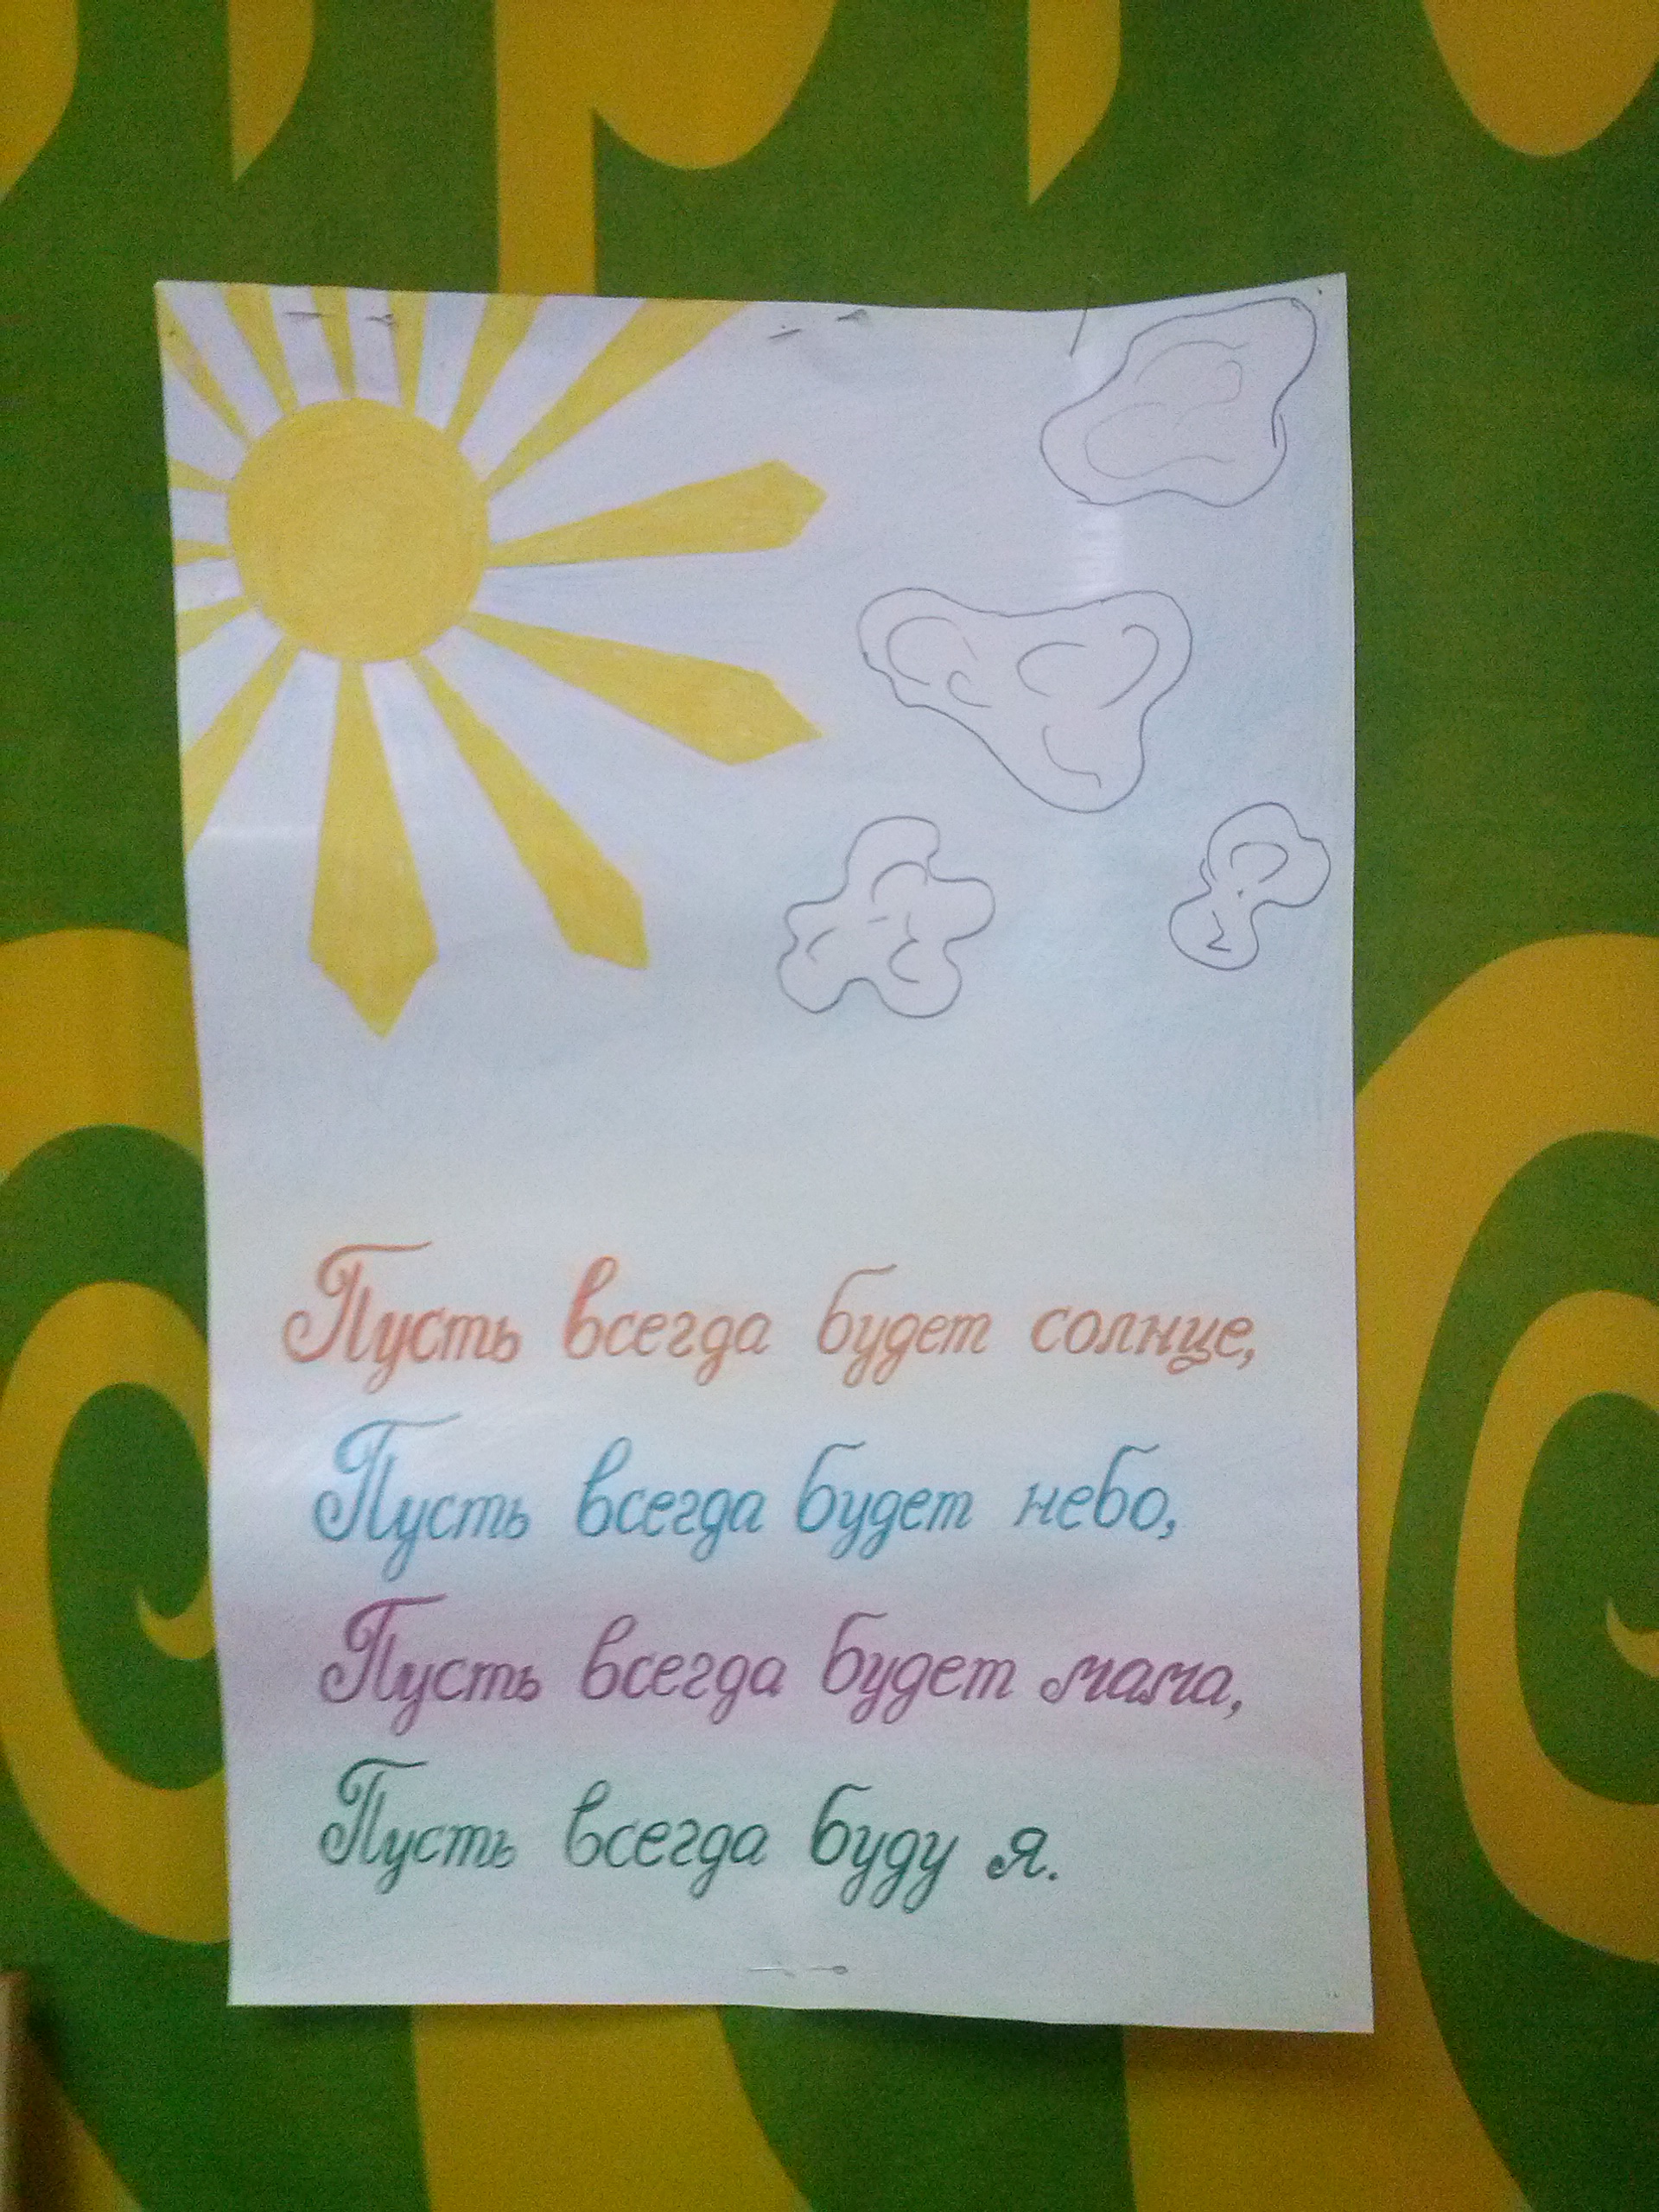 Пусть всегда будет солнце,
Пусть всегда будет небо,
Пусть всегда будет мама,
Пусть всегда буду я.